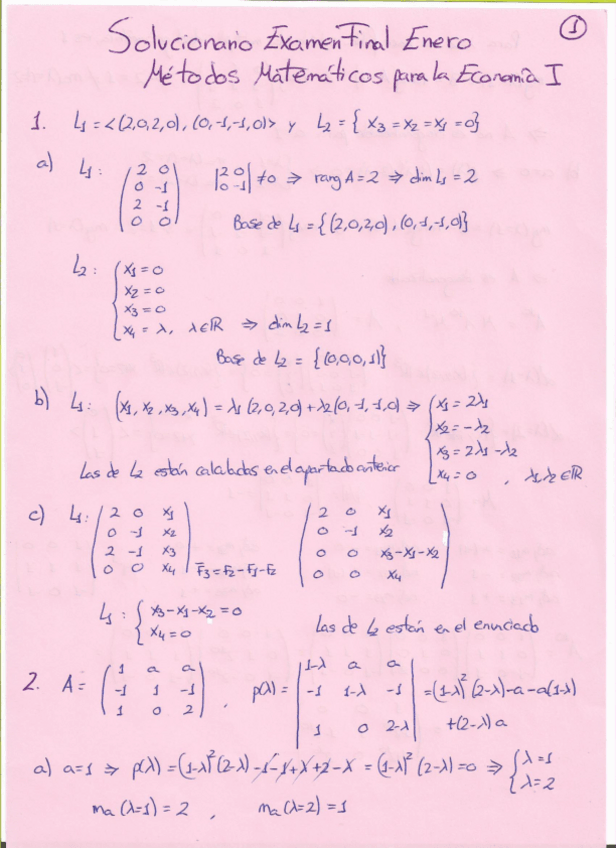 1
Solucionario Examen Final Enero
Métodos Matemáticos para la Economía I
1. L₁ = <(2,0,2,0), (0,-1,-1,0)> y L₂ = { x₃ = x₂ = x₁ = 0}
a) L₁: (2 0 / 0 -1 / 2 -1 / 0 0) |2 0 / 0 -1| ≠ 0 ⇒ rang A = 2 ⇒ dim L₁ = 2
Base de L₁ = {(2,0,2,0), (0,-1,-1,0)}
L₂: { x₁ = 0
x₂ = 0
x₃ = 0
x₄ = λ, λ∈ℝ ⇒ dim L₂ = 1
Base de L₂ = {(0,0,0,1)}
b) L₁: (x₁, x₂, x₃, x₄) = λ₁ (2,0,2,0) + λ₂ (0,-1,-1,0) ⇒ { x₁ = 2λ₁
x₂ = -λ₂
x₃ = 2λ₁ - λ₂
Las de L₂ están calculadas en el apartado anterior x₄ = 0 , λ₁ λ₂ ∈ ℝ
c) L₁: (2 0 x₁ / 0 -1 x₂ / 2 -1 x₃ / 0 0 x₄) F₃ = F₂ - F₁ - F₂ (2 0 x₁ / 0 -1 x₂ / 0 0 x₃-x₁-x₂ / 0 0 x₄)
L₁: { x₃ - x₁ - x₂ = 0
x₄ = 0 Las de L₂ están en el enunciado
2. A = (1 a a / -1 1 -1 / 1 0 2) , p(λ) = |1-λ a a / -1 1-λ -1 / 1 0 2-λ| = (1-λ)² (2-λ) - a - a(1-λ)
+(2-λ) a
a) a=1 ⇒ p(λ) = (1-λ)² (2-λ) - 1 - 1 + λ + 2 - λ = (1-λ)² (2-λ) = 0 ⇒ { λ = 1
λ = 2
ma (λ=1) = 2 , ma (λ=2) = 1